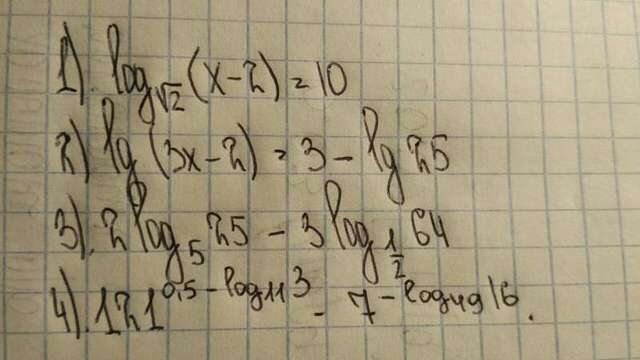 1). log_{√2}(x-2) = 10
2) lg(3x-2) = 3 - lg 25
3). 2log_5 25 - 3log_{1/2} 64
4). 121^{0,5 - log_{11} 3} - 7^{-log_{49} 16}.